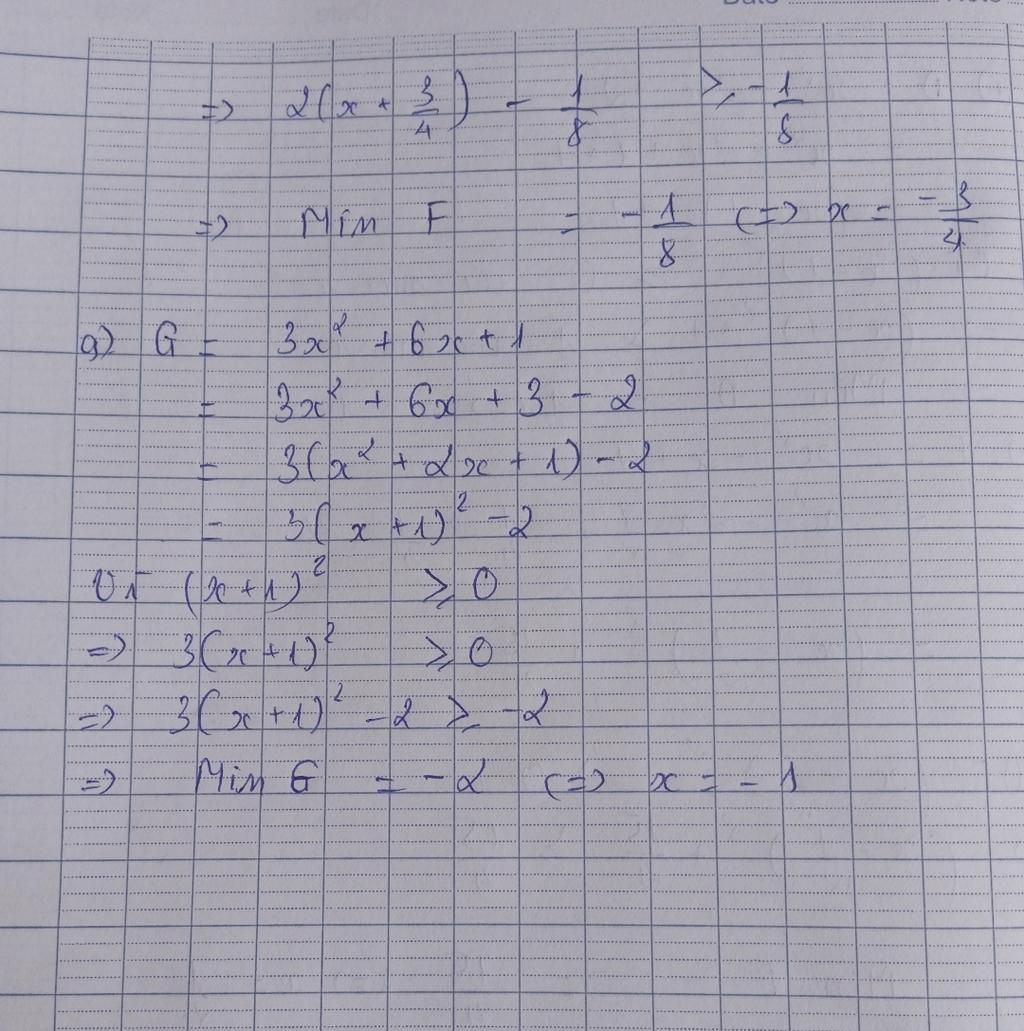 => 2(x + 3/4) - 1/8 ≥ -1/8
=> Min F = -1/8 <=> x = -3/4
g) G = 3x² + 6x + 1
= 3x² + 6x + 3 - 2
= 3(x² + 2x + 1) - 2
= 3(x + 1)² - 2
Vì (x + 1)² ≥ 0
=> 3(x + 1)² ≥ 0
=> 3(x + 1)² - 2 ≥ -2
=> Min G = -2 <=> x = -1